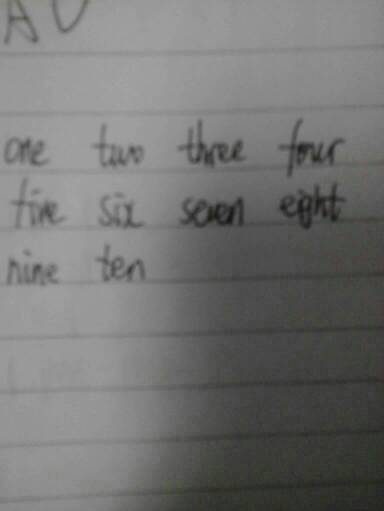 one two three four
five six seven eight
nine ten